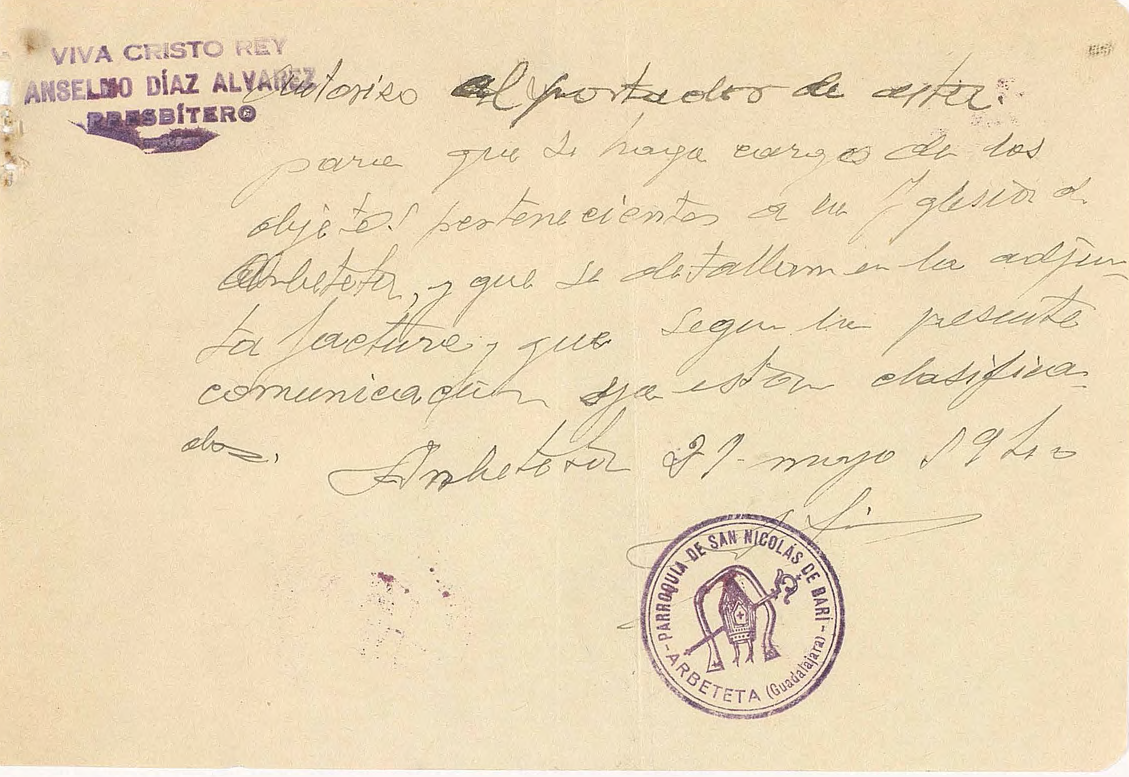 VIVA CRISTO REY
ANSELMO DÍAZ ALVAREZ
PRESBÍTERO
Autoriso al portador de esta.
para que se haga cargo de los
objetos pertenecientes a la Iglesia de
Arbeteta, y que se detallan en la adjun
ta factura, y que segun la presente
comunicacion ya estan clasifica
dos.
Arbeteta 21 mayo 1940
PARROQUIA DE SAN NICOLÁS DE BARI
ARBETETA (Guadalajara)